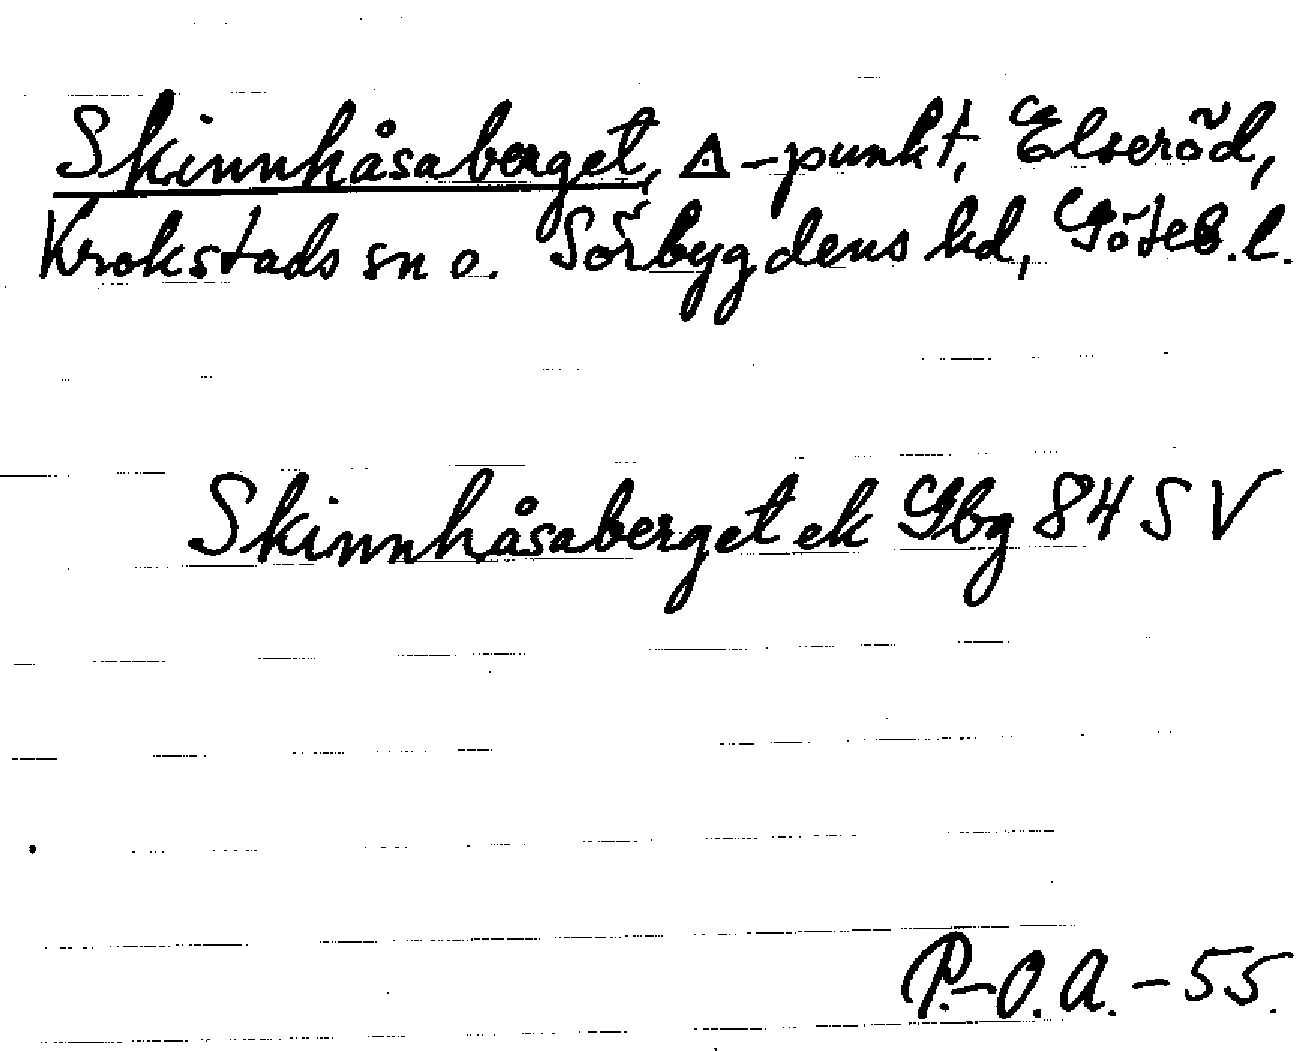 Skinnhåsaberget, △-punkt, Elseröd,
Krokstads sn o. Sörbygdens hd, Göteb. l.
Skinnhåsaberget ek Gbg 84 SV
P.-O. A. - 55.